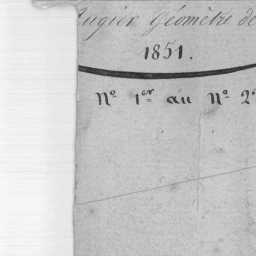 Augier Géomètre de
1851.
Nº 1er au Nº 2